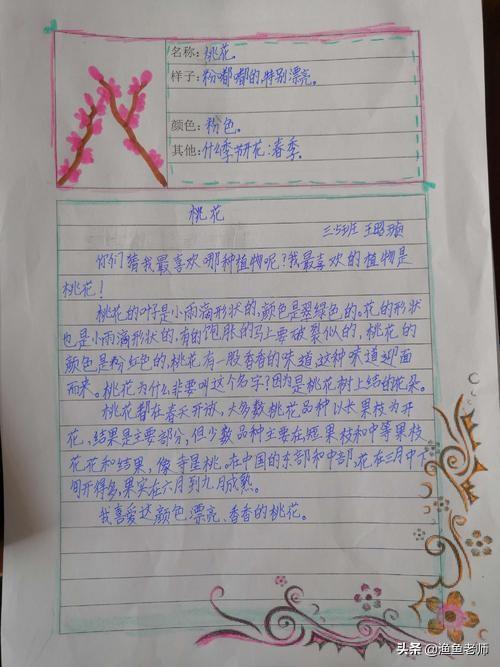 名称:桃花。
样子:粉嘟嘟的,特别漂亮。
颜色:粉色。
其他:什么季节开花:春季。
桃花
三5班 王昭瑜
你们猜我最喜欢哪种植物呢?我最喜欢的植物是
桃花!
桃花的叶子是小雨滴形状的,颜色是翠绿色的。花的形状
也是小雨滴形状的,有的饱胀的马上要破裂似的,桃花的
颜色是粉红色的,桃花有一股香香的味道,这种味道迎面
而来。桃花为什么非要叫这个名字?因为是桃花树上结的花朵。
桃花都在春天开放,大多数桃花品种以长果枝为开
花,结果是主要部分,但少数品种主要在短果枝和中等果枝
花花和结果,像寿星桃。在中国的东部和中部,花在三月中下
旬开得多,果实在六月到九月成熟。
我喜爱这颜色漂亮、香香的桃花。
头条 @渔鱼老师